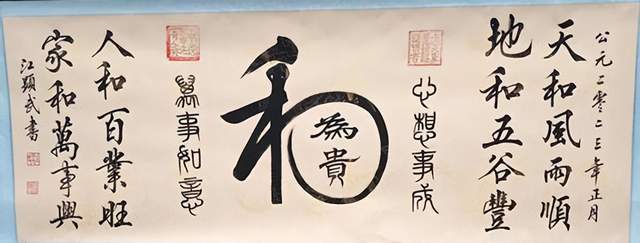 公元二零二三年正月
天和風雨順
地和五谷豐
心想事成
和
為貴
萬事如意
人和百業旺
家和萬事興
江顯武書